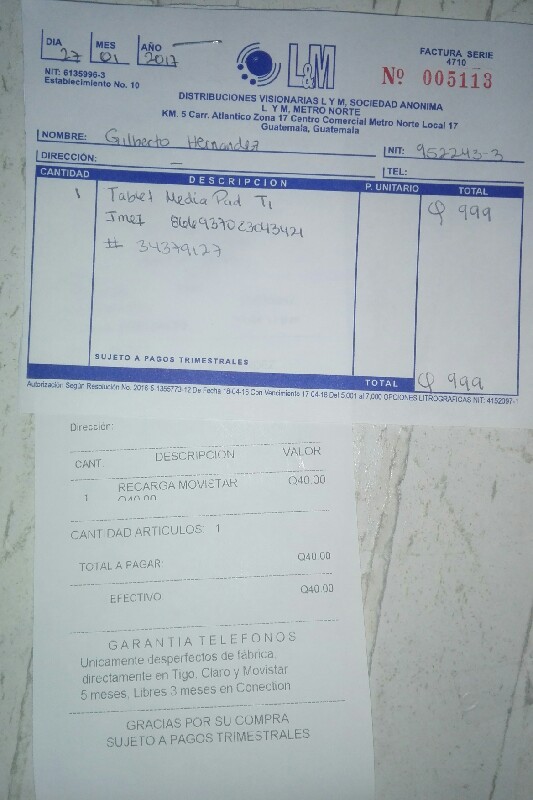 DIA 27 MES 01 AÑO 2017
L&M
FACTURA SERIE
4710
Nº 005113
NIT: 6135996-3
Establecimiento No. 10
DISTRIBUCIONES VISIONARIAS L Y M, SOCIEDAD ANONIMA
L Y M, METRO NORTE
KM. 5 Carr. Atlantico Zona 17 Centro Comercial Metro Norte Local 17
Guatemala, Guatemala
NOMBRE: Gilberto Hernandez NIT: 952243-3
DIRECCIÓN: TEL:
CANTIDAD DESCRIPCION P. UNITARIO TOTAL
1 Tablet Media Pad T1 Q 999
Imei 866937023043421
# 34379127
SUJETO A PAGOS TRIMESTRALES
TOTAL Q 999
Autorización Según Resolución No. 2016-5-1355773-12 De Fecha 18-04-16 Con Vencimiento 17-04-18 Del 5,001 al 7,000 OPCIONES LITROGRAFICAS NIT:
Dirección:
CANT. DESCRIPCION VALOR
1 RECARGA MOVISTAR Q40.00
Q40.00
CANTIDAD ARTICULOS: 1
TOTAL A PAGAR: Q40.00
EFECTIVO Q40.00
GARANTIA TELEFONOS
Unicamente desperfectos de fábrica,
directamente en Tigo, Claro y Movistar
5 meses, Libres 3 meses en Conection
GRACIAS POR SU COMPRA
SUJETO A PAGOS TRIMESTRALES